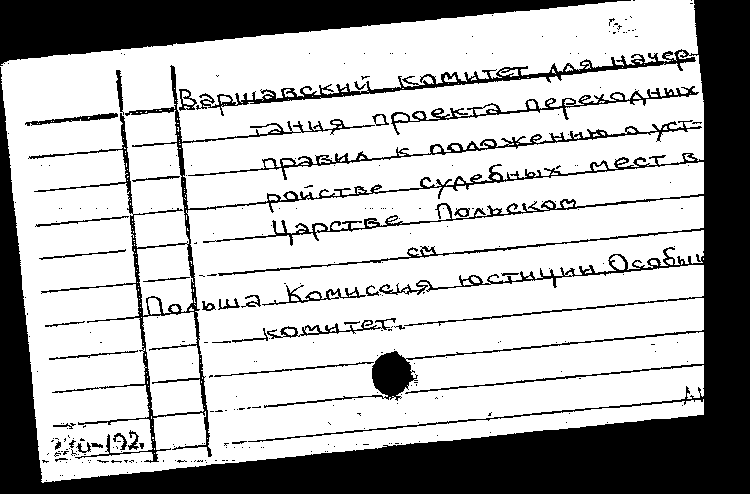 Варшавский комитет для начер
тания проекта переходных
правил к положению о уст=
ройстве судебных мест в
Царстве Польском
см
Польша. Комиссия юстиции. Особый
комитет.
-192.